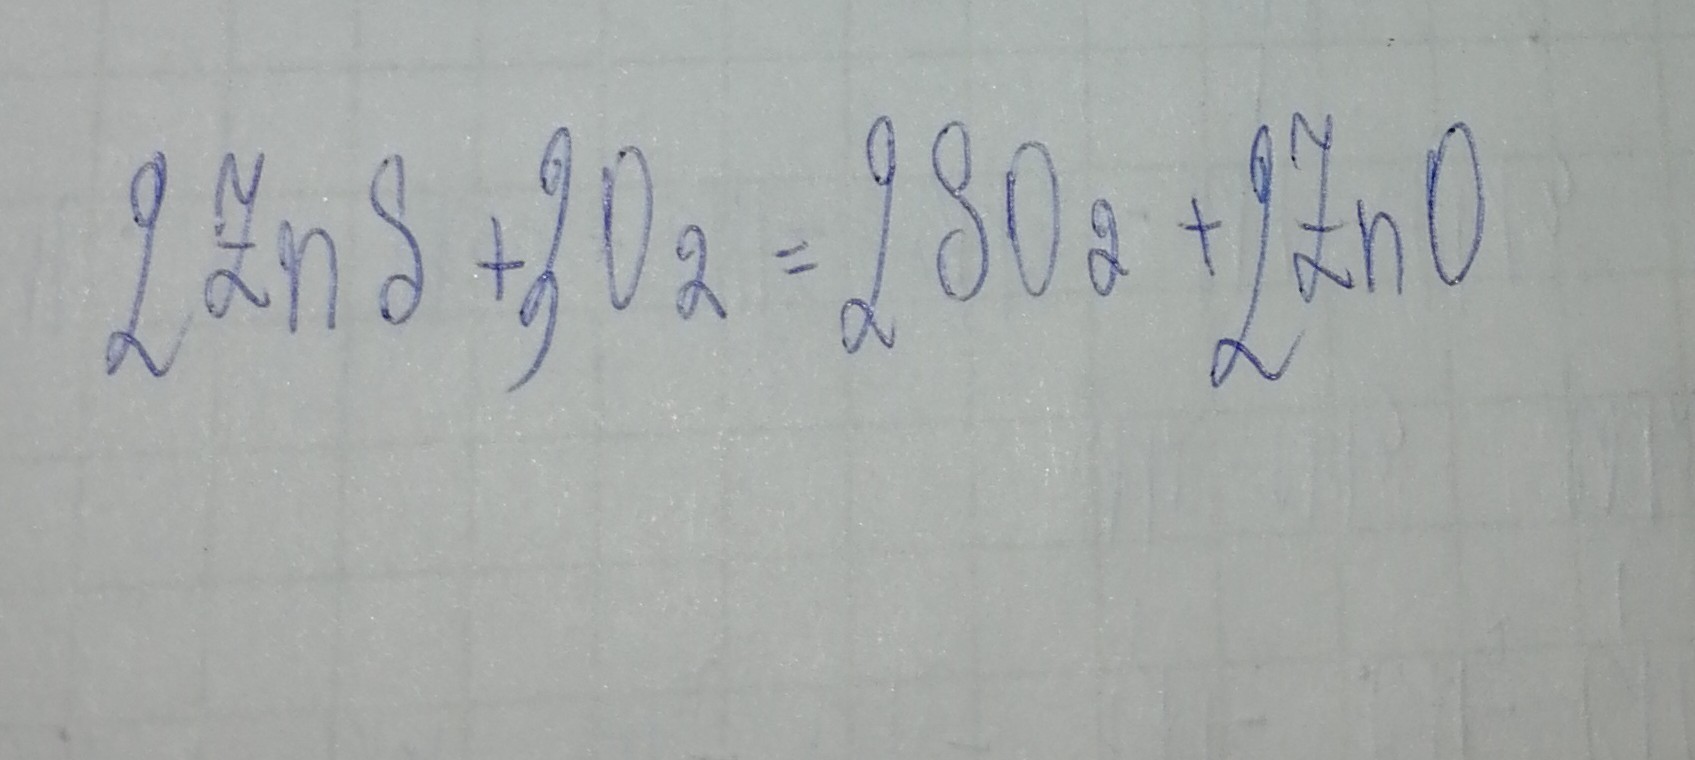 2ZnS + 3O₂ = 2SO₂ + 2ZnO